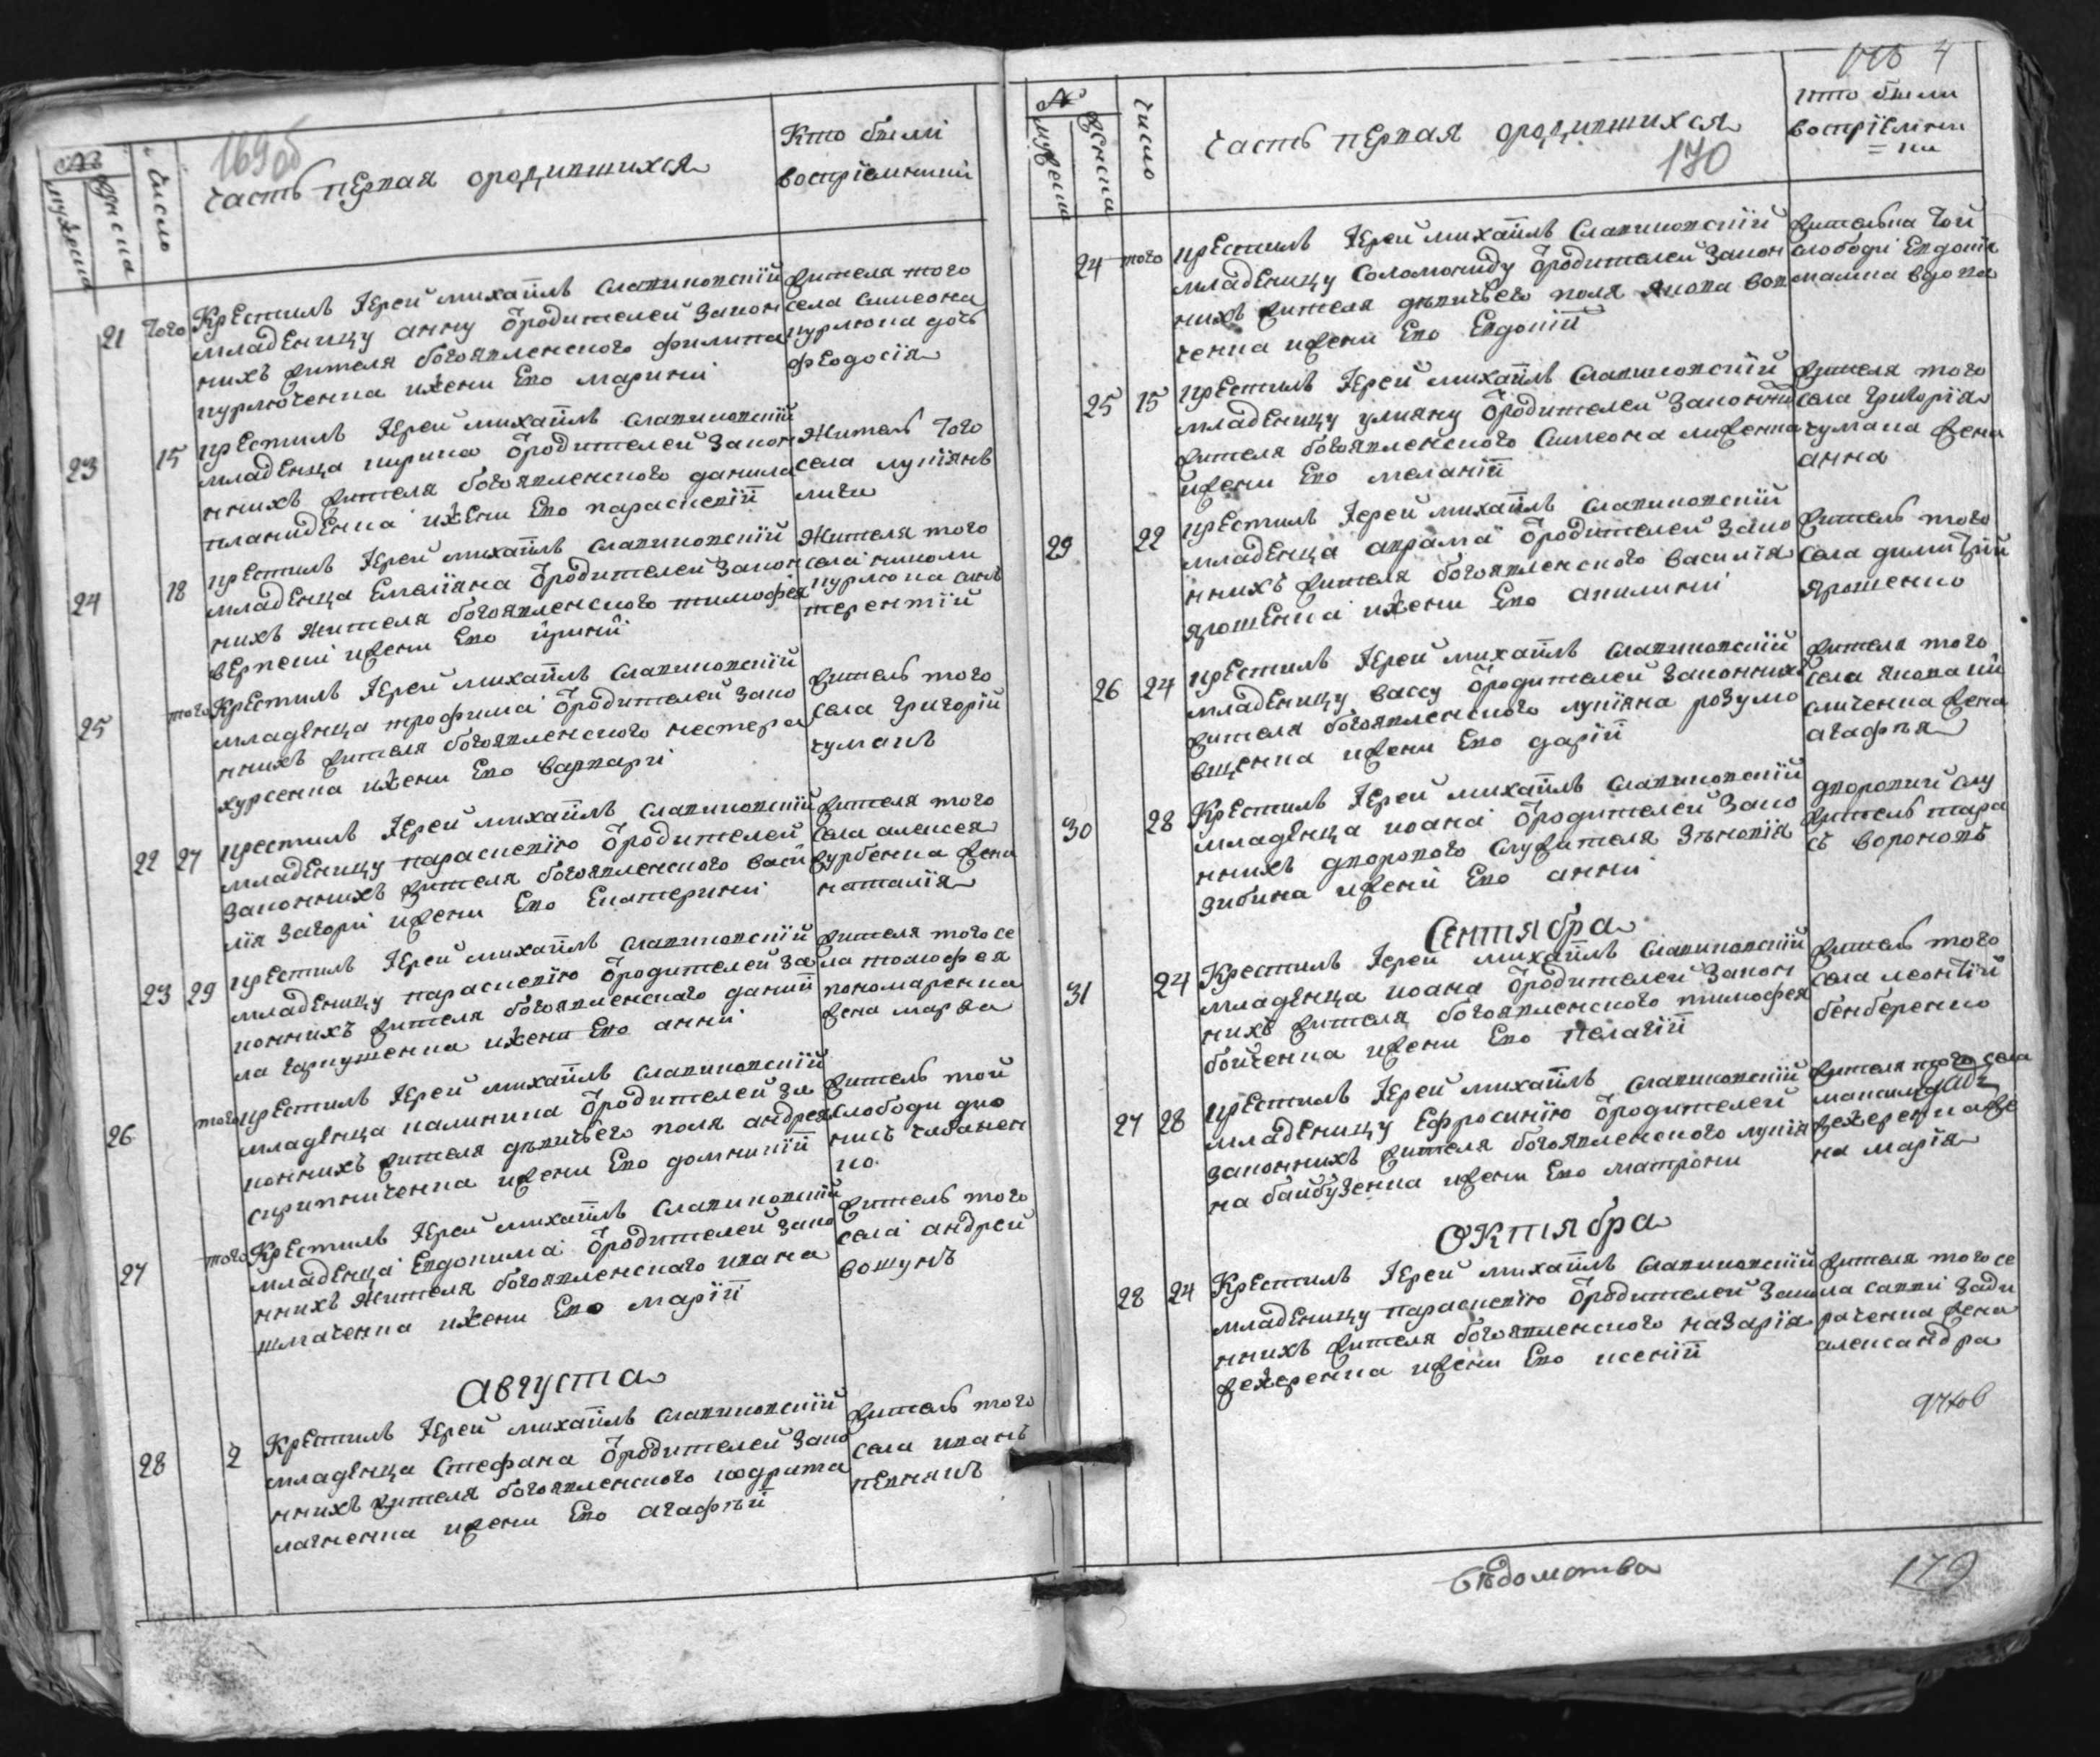 169об
№
мужеска
женска
число
часть первая ородившихся
Кто были
восприемники
21 того Крестилъ Iерей михаилъ Славиновский
младеницу анну ŏродителей закон
нихъ жителя богоявленского филипа
курлюченка и жени Его марини
жителя того
села симеона
курлюка дочь
феодосiя
23 15 крестилъ Iерей михаилъ Славиновский
младенца кирила ŏродителей закон
нихъ жителя богоявленского данила
планиденка и жени Его параскевiи
Житель того
села лукiянъ
18 крестилъ Iерей михаилъ Славиновский
24 младенца Емелiяна ŏродителей закон
нихъ жителя богоявленского тимофея
и жени Его ирини
Жителя того
села николи
курлюка синъ
терентiй
25 того Крестилъ Iерей михаилъ Славиновский
младенца трофима ŏродителей зако
нихъ жителя богоявленского нестера
хурсенка и жени Его варвари
житель того
села григорiй
чумакъ
22 27 крестилъ Iерей михаилъ Славиновский
младеницу параскевiю ŏродителей
законнихъ жителя богоявленского васи
лiя и жени Его Екатерини
жителя того
села алексея
журбенка жена
наталiя
23 29 крестилъ Iерей михаилъ Славиновский
младеницу параскевiю ŏродителей за
коннихъ жителя богоявленскаго дании
ла и жени Его анни
жителя того се
ла тимофея
пономаренка
жена марфа
26 того крестилъ Iерей михаилъ Славиновский
младенца калиника ŏродителей за
коннихъ жителя девичъего поля андрея
скрипниченка и жени Его домникiи
житель той
слободи дио
нисъ чабанен
ко
27 того Крестилъ Iерей михаилъ Славиновский
младенца Евдокима ŏродителей зако
ннихъ жителя богоявленскаго ивана
шмаченка и жени Его марiи
житель того
села андрей
вошунъ
Августа
28 2 Крестилъ Iерей михаилъ Славиновский
младенца Стефана ŏродителей зако
ннихъ жителя богоявленского кодрата
и жени Его агафiи
житель того
села иванъ
певнякъ
4
№
мужеска
женска
число
часть первая ородившихся
170
кто были
восприемни
=ки
24 того крестилъ Iерей михаилъ Славиновский
младеницу Соломониду ŏродителей закон
нихъ жителя девичъего поля якова вов
ченка и жени Его Евдокiи
жителька той
слободи Евдокiя
вдова
25 15 крестилъ Iерей михаилъ Славиновский
младеницу улияну ŏродителей законни
жителя богоявленского Симеона
и жени Его меланiи
жителя того
села григорiя
чумака жена
анна
29 22 крестилъ Iерей михаилъ Славиновский
младенца аврама ŏродителей зако
ннихъ жителя богоявленского василiя
ярошенка и жени Его акилини
житель того
села димитрiй
ярошенко
26 24 крестилъ Iерей михаилъ Славиновский
младеницу вассу ŏродителей законнихъ
жителя богоявленского лукiяна розумо
вщенка и жени Его дарiи
жителя того
села якова
сличенка жена
агафия
30 28 Крестилъ Iерей михаилъ Славиновский
младенца иоана ŏродителей зако
ннихъ дворового служителя зѣновiя
зибина и жени Его анни
дворовий слу
житель тара
съ вороновъ
Сентябра
31 24 Крестилъ Iерей михаилъ Славиновский
младенца иоана ŏродителей закон
нихъ жителя богоявленского тимофея
бойченка и жени Его Пелагiи
житель того
села леонтiй
бенберенко
27 28 крестилъ Iерей михаилъ Славиновский
младеницу Ефросинiю ŏродителей
законнихъ жителя богоявленского лукiя
на байбузенка и жени Его матрони
жителя того села
жежеренка же
на марiя
ОКтябра
28 24 Крестилъ Iерей михаилъ Славиновский
младеницу параскевiю ŏродителей зако
ннихъ жителя богоявленского назарiя
жежеренка и жени Его ксенiи
жителя того се
ла савви
жена
александра
Вѣдомства
179